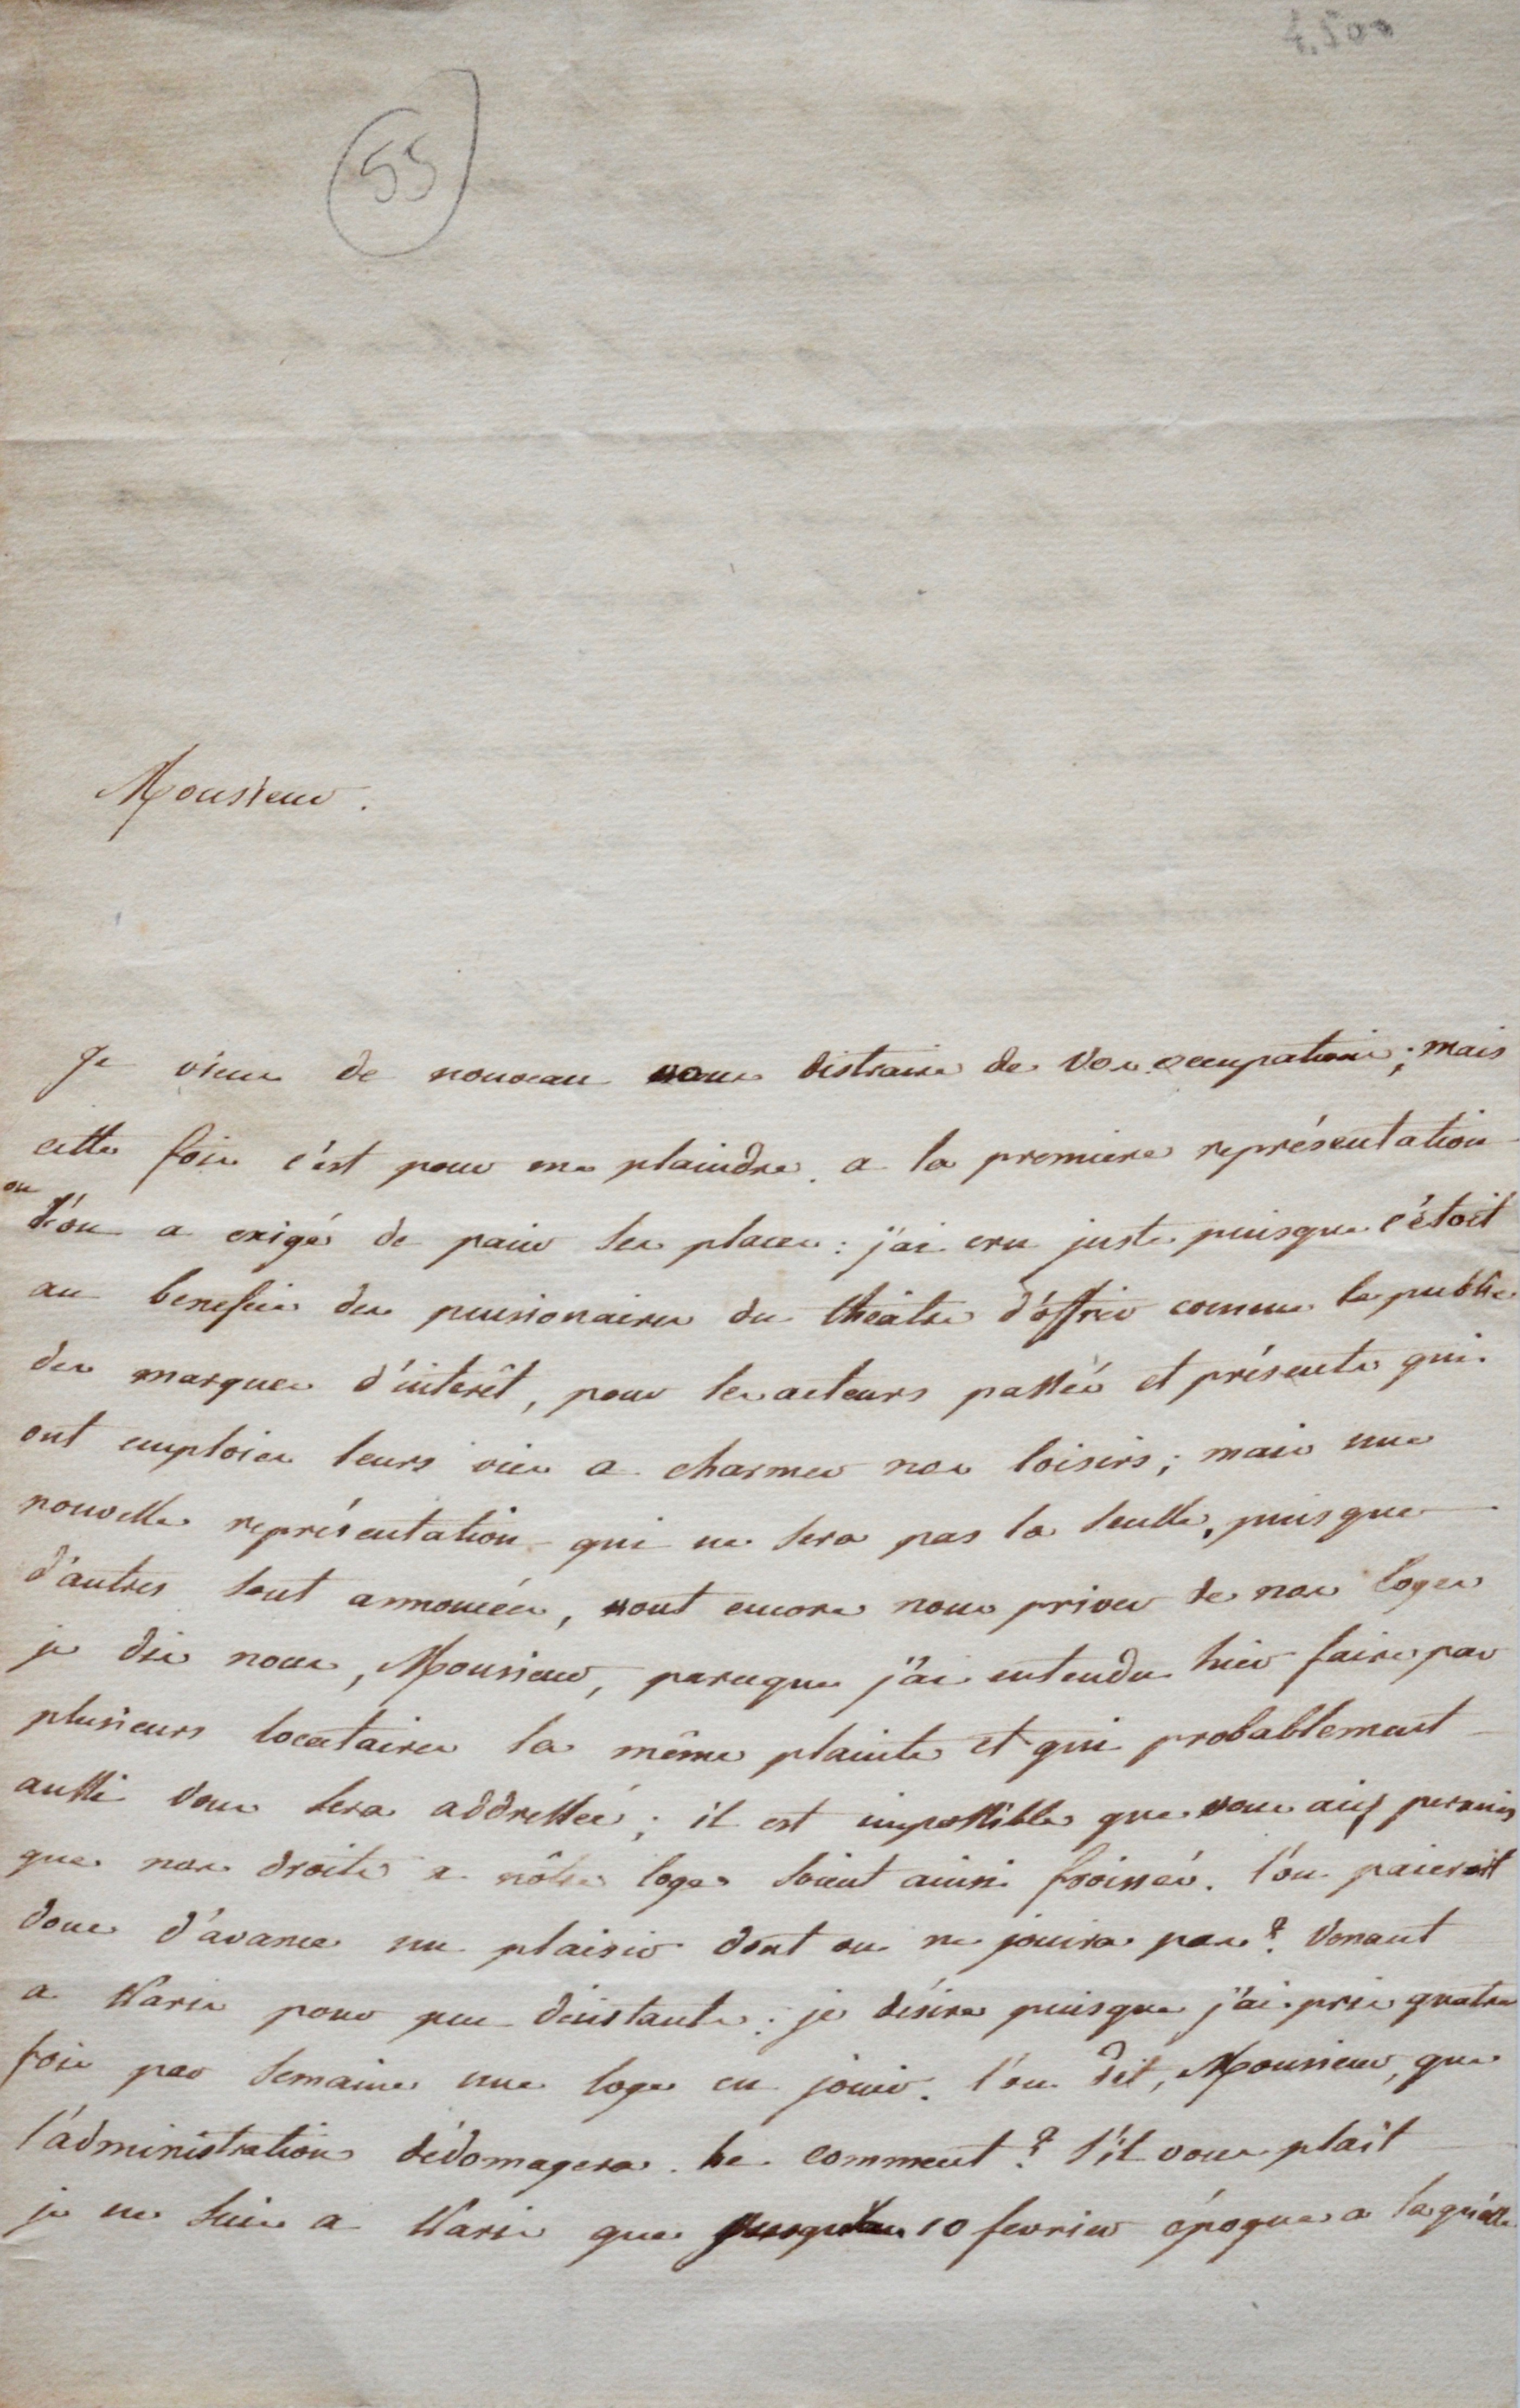 55
Monsieur.
Je viens de nouveau vous distraire de vos occupations; mais
cette fois c'est pour me plaindre. a la premiere représentation
ou
l'on a exigé de païer les places: j'ai cru juste puisque c'étoit
au benefice des pensionaires du théâtre d'offrir comme le public
des marques d'interêt, pour les acteurs passés et présents qui
ont emploiés leurs vies a charmer nos loisirs; mais une
nouvelle représentation qui ne sera pas la seulle, puisque
d'autres sont annoncées, vont encore nous priver de nos loges
je dis nous, Monsieur, parceque j'ai entendu hier faire par
plusieurs locataires la même plainte et qui probablement
aussi vous sera addressée; il est impossible que vous aiez permis
que nos droits a nôtre loge soient ainsi froissés. l'on paieroit
donc d'avance un plaisir dont on ne jouira pas? Venant
a Paris pour peu d'instants: je désire puisque j'ai pris quatre
fois par semaine une loge en jouir. l'on dit, Monsieur, que
l'administration dédomagera. he comment? s'il vous plaît
je ne suis a Paris que jusqu'au 10 fevrier époque a laquélle